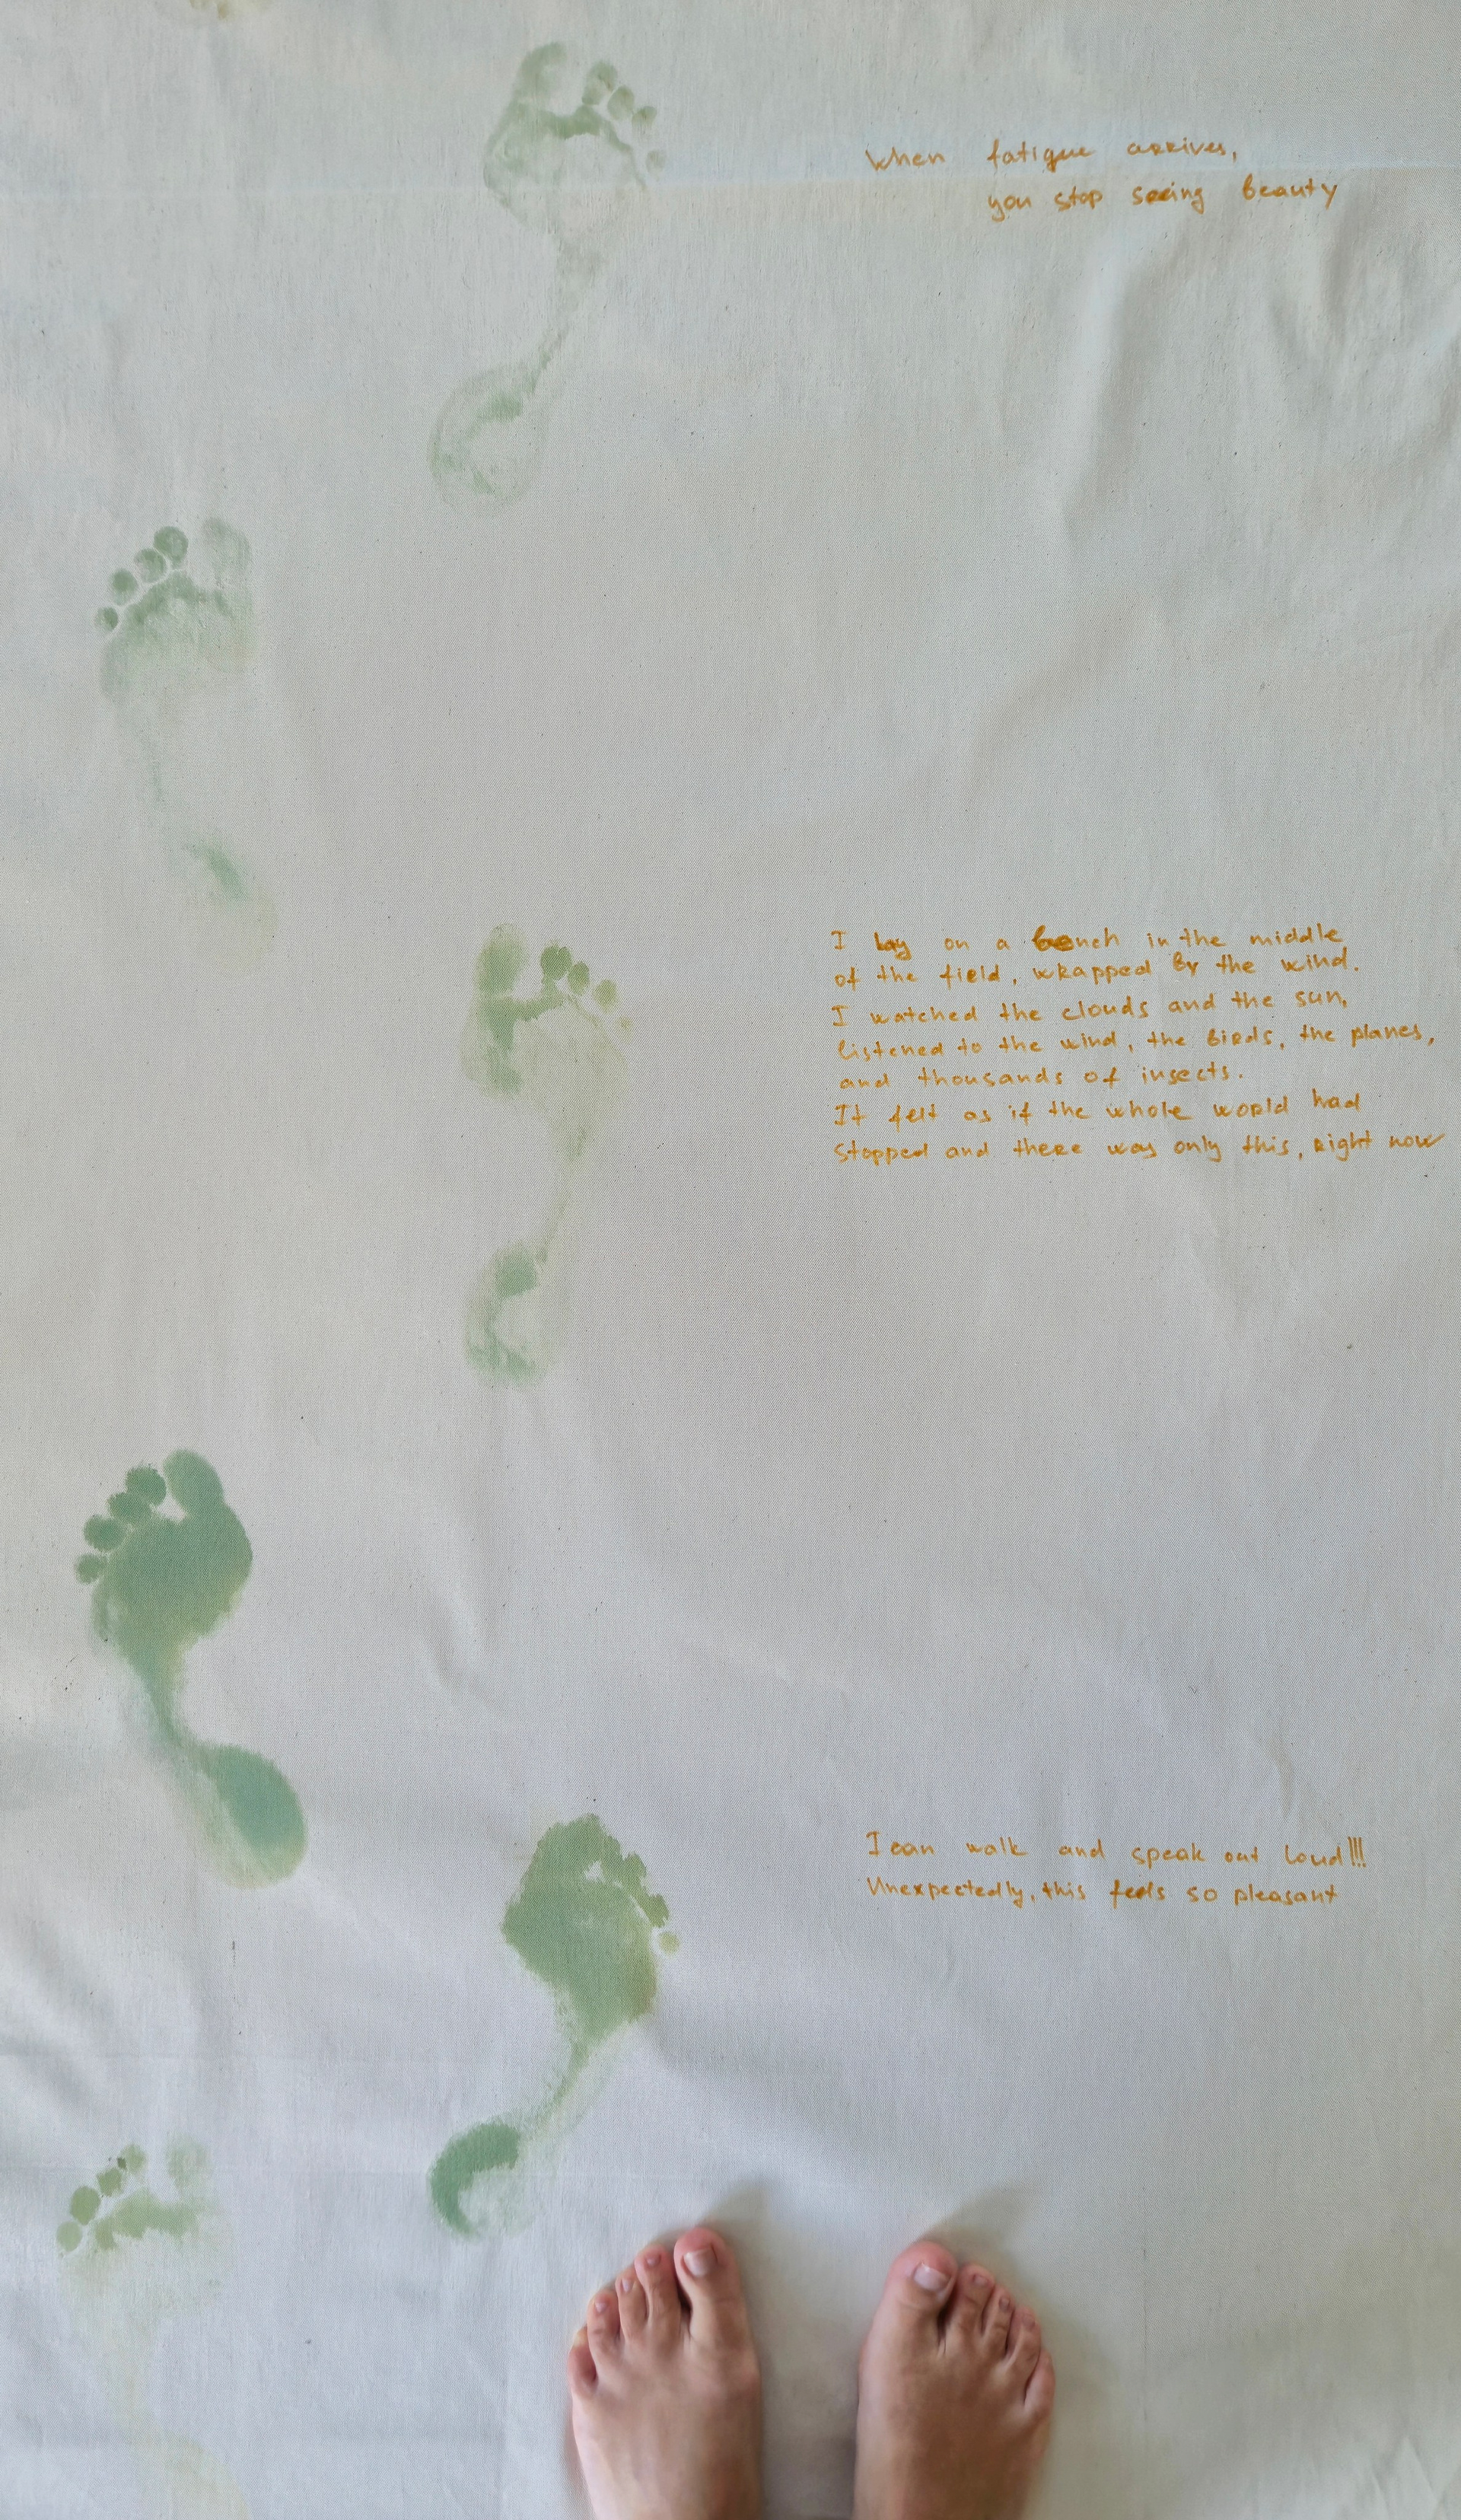 When fatigue arrives,
you stop seeing beauty
I lay on a bench in the middle
of the field, wrapped by the wind.
I watched the clouds and the sun,
listened to the wind, the birds, the planes,
and thousands of insects.
It felt as if the whole world had
stopped and there was only this, right now
I can walk and speak out loud!!!
Unexpectedly, this feels so pleasant